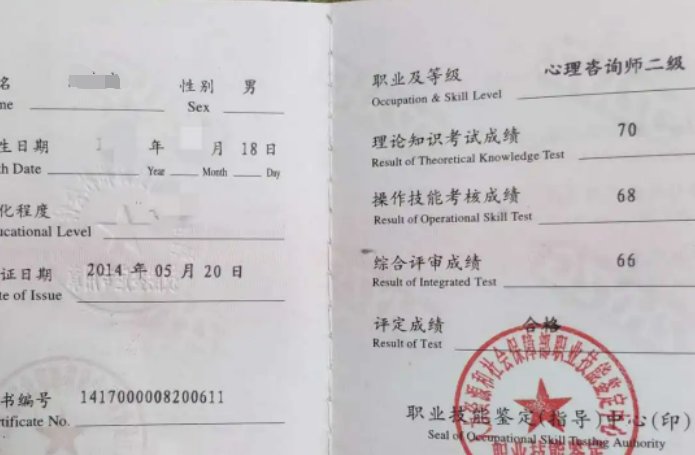 名
性别 男
Sex
生日期 年 月 18 日
th Date Year Month Day
化程度
ucational Level
证日期 2014 年 05 月 20 日
te of Issue
书编号 1417000008200611
ertificate No.
职业及等级 心理咨询师二级
Occupation & Skill Level
理论知识考试成绩 70
Result of Theoretical Knowledge Test
操作技能考核成绩 68
Result of Operational Skill Test
综合评审成绩 66
Result of Integrated Test
评定成绩 合格
Result of Test
职业技能鉴定(指导)中心(印)
Seal of Occupational Skill Testing Authority
职业技能鉴定